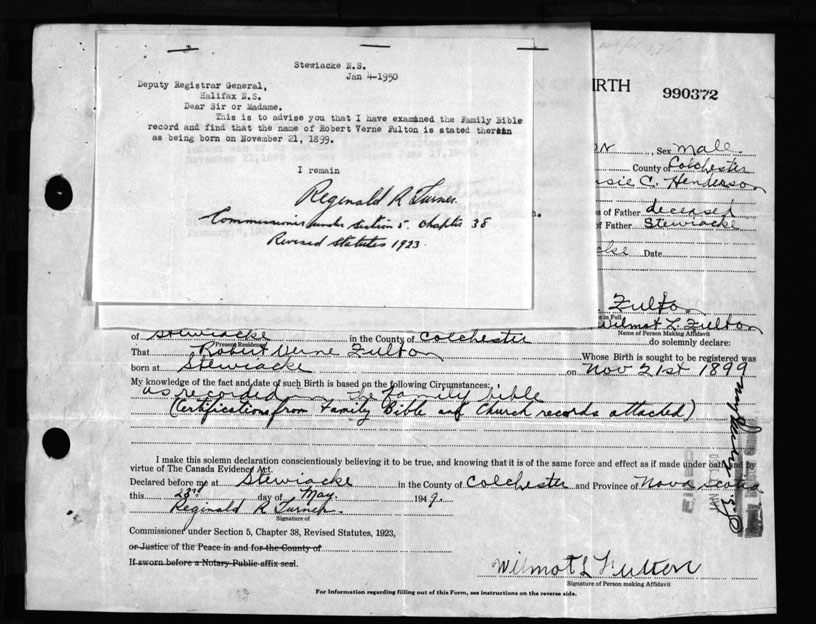 Stewiacke N.S.
Jan 4-1950
Deputy Registrar General,
Halifax N.S.
Dear Sir or Madame.
This is to advise you that I have examined the Family Bible
record and find that the name of Robert Verne Fulton is stated therein
as being born on November 21, 1899.
I remain
Reginald R Turner.
Commissioner under Section 5. Chapter 38
Revised Statutes 1923.
IRTH
990372
, Sex Male
County of Colchester
sie C. Henderson
s of Father deceased
f Father Stewiacke
cke Date
Fulto
in Full
Wilmot L. Fulton
Name of Person Making Affidavit
of Stewiacke in the County of Colchester do solemnly declare:
Present Residence
That Robert Verne Fulton Whose Birth is sought to be registered was
born at Stewiacke on Nov 21st 1899
My knowledge of the fact and date of such Birth is based on the following Circumstances:
as recorded in the family bible
(Certifications from Family Bible and Church records attached)
I make this solemn declaration conscientiously believing it to be true, and knowing that it is of the same force and effect as if made under oath and by
virtue of The Canada Evidence Act.
Declared before me at Stewiacke in the County of Colchester and Province of Nova Scotia
this 23rd day of May. 1949.
Reginald R Turner.
Signature of
Commissioner under Section 5, Chapter 38, Revised Statutes, 1923,
or Justice of the Peace in and for the County of
If sworn before a Notary Public affix seal.
Wilmot L Fulton
Signature of Person making Affidavit
For Information regarding filling out of this Form, see instructions on the reverse side.